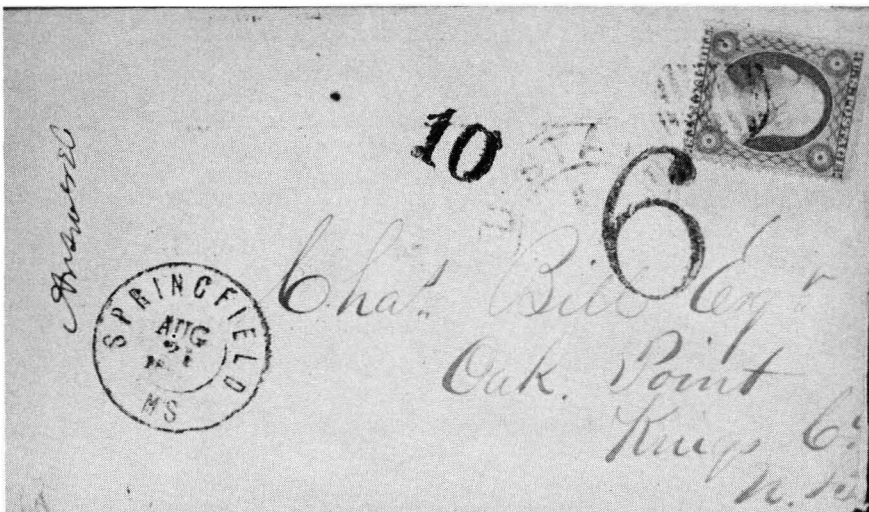 10
6
Answered
SPRINGFIELD
AUG
21
MS
Chas. Bill Esqr
Oak. Point
Kings Co.
N. B.